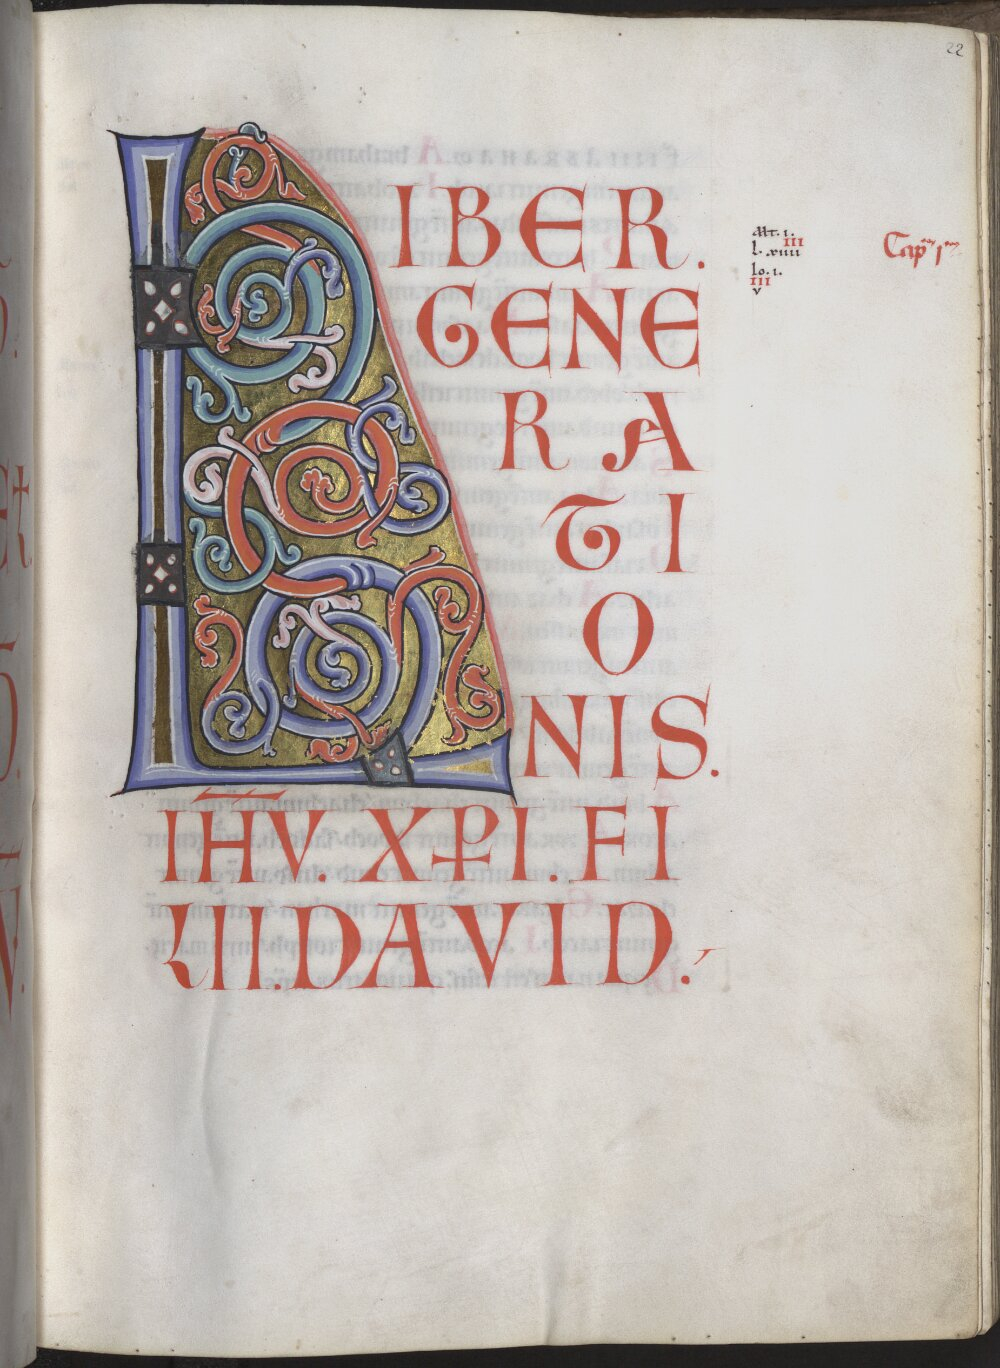 22
LIBER.
GENE
RA
TI
O
NIS.
IHV. XPI. FI
LII. DAVID.
Mt. I.
III
l. XIIII
Io. I.
III
V